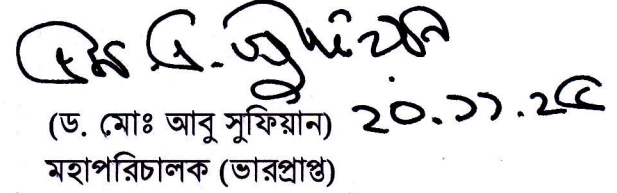 (ড. মোঃ আবু সুফিয়ান) ২০.১১.২৫
মহাপরিচালক (ভারপ্রাপ্ত)